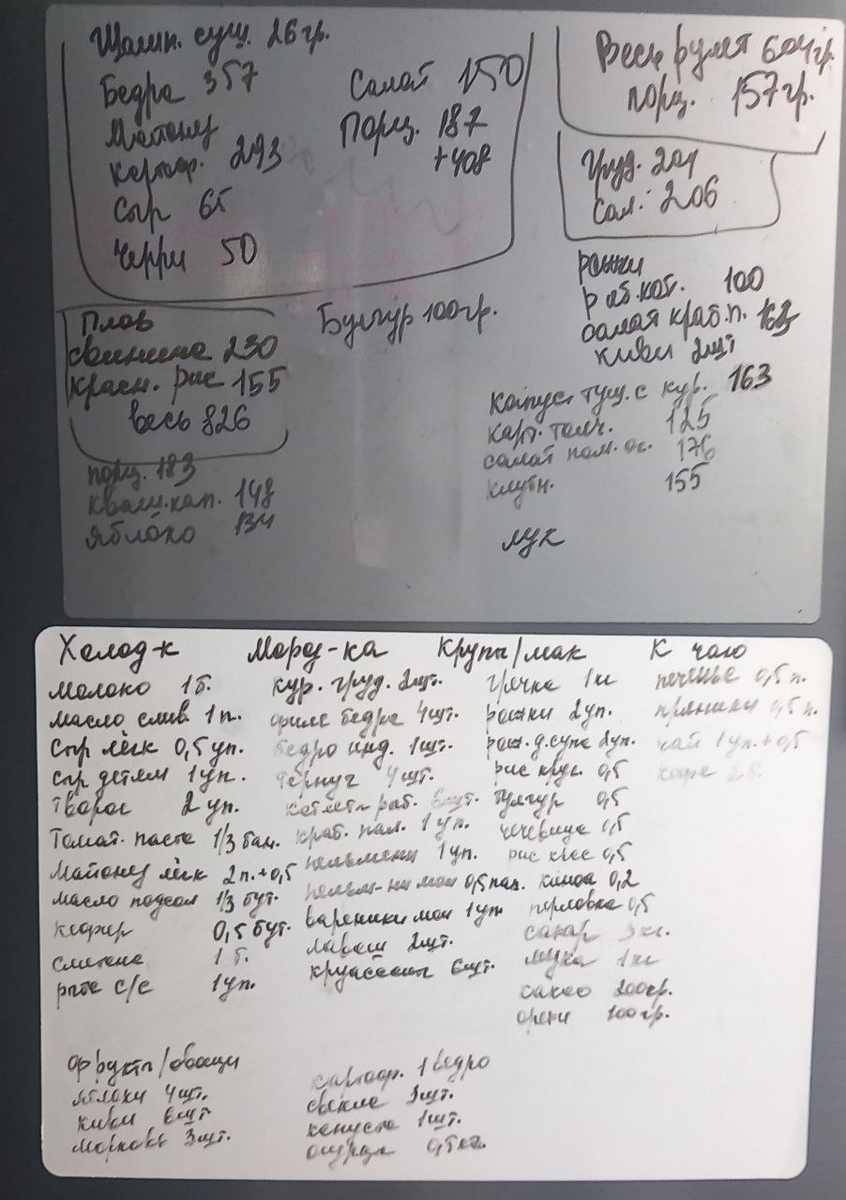 Шамп. суш. 26 гр.
Бедра 357
Майонез
картоф. 293
Сыр 65
Черри 50
Салат 150
Порц. 187
+408
Весь рулет 604 гр.
порц. 157 гр.
Груд. 201
Сал. 206
Плов
свинина 230
красн. рис 155
весь 826
порц. 183
кваш. кап. 148
яблоко 134
Булгур 100 гр.
рожки
раб. кот. 100
салат краб. п. 163
киви 2 шт
капуст. туш. с кур. 163
карт. толч. 125
салат пом. ог. 176
155
лук
Холод-к
молоко 1 б.
масло слив. 1 п.
Сыр лёгк 0,5 уп.
Сыр детям 1 уп.
Творог 2 уп.
Томат. паста 1/3 бан.
Майонез лёгк 2 п. + 0,5
масло подсол 1/3 бут.
кефир 0,5 бут.
сметана 1 б.
рыба с/с 1 уп.
Мороз-ка
кур. груд. 2 шт.
филе бедра 4 шт.
бедро инд. 1 шт.
4 шт.
котлеты раб. 6 шт.
краб. пал. 1 уп.
пельмени 1 уп.
пельм-ни мои 0,5 пал.
вареники мои 1 уп
лаваш 2 шт.
круассаны 6 шт.
Крупы/мак
гречка 1 кг
рожки 2 уп.
рож. д. супа 2 уп.
рис круг. 0,5
булгур 0,5
чечевица 0,5
рис 0,5
киноа 0,2
перловка 0,5
сахар 3 кг.
мука 1 кг
какао 200 гр.
орехи 100 гр.
К чаю
печенье 0,5 п.
пряники 0,5 п.
чай 1 уп. + 0,5
кофе 2 б.
Фрукты/овощи
яблоки 4 шт.
киви 6 шт
морковь 3 шт.
картоф. 1 ведро
свекла 3 шт.
капуста 1 шт.
огурцы 0,5 кг.